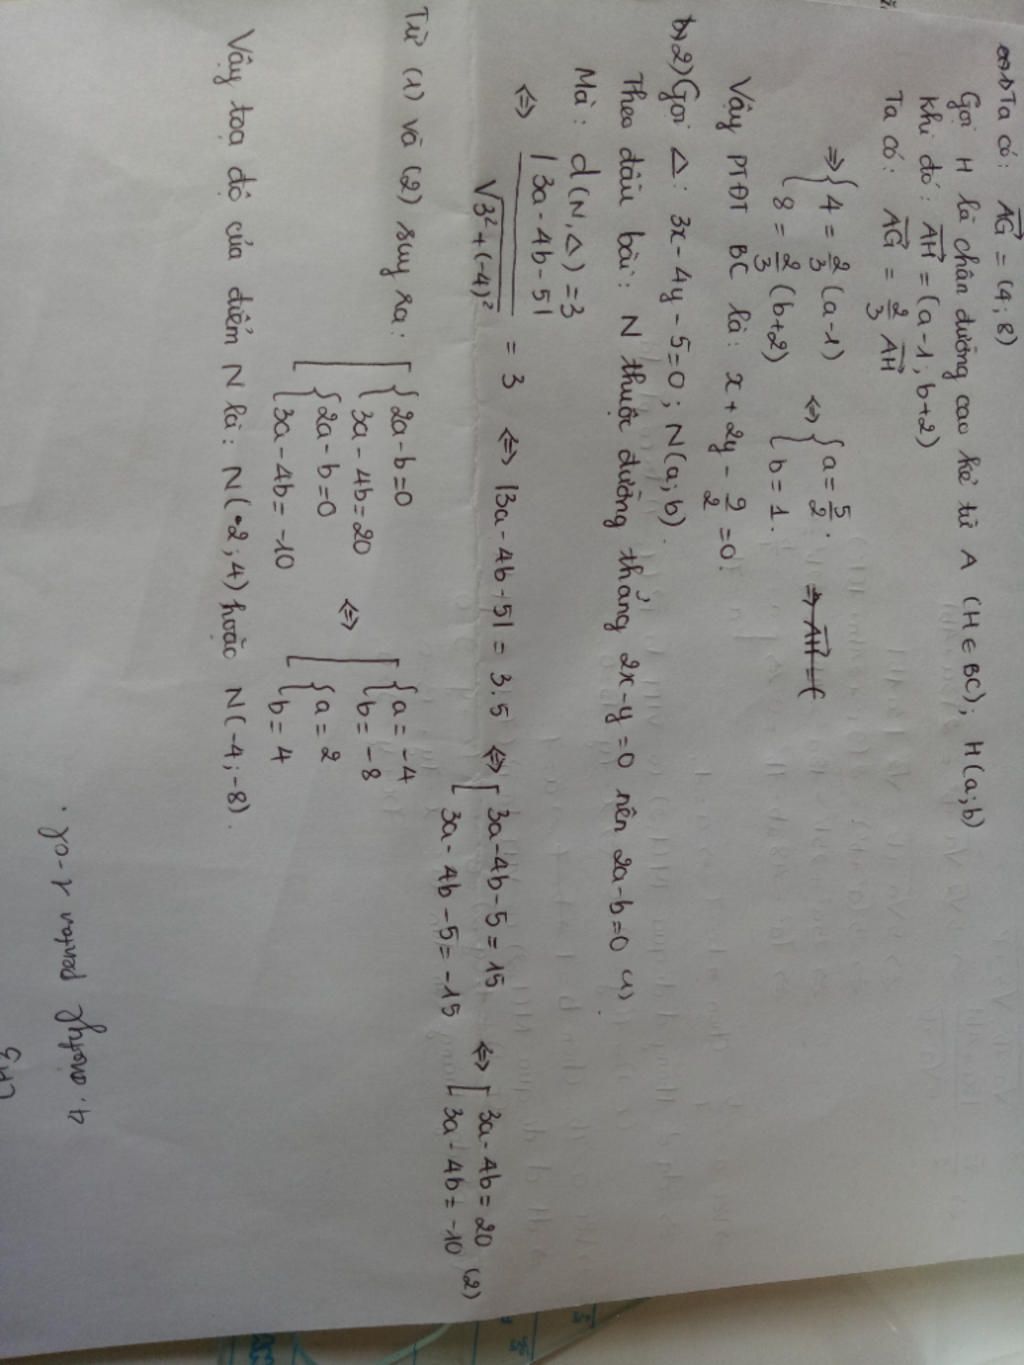 Ta có: AG = (4; 8)
Gọi H là chân đường cao kẻ từ A (H ∈ BC); H(a; b)
Khi đó: AH = (a - 1; b + 2)
Ta có: AG = 2/3 AH
⇒ { 4 = 2/3 (a - 1) ⇔ { a = 5/2 . ⇒ AH = (
{ 8 = 2/3 (b + 2) { b = 1.
Vậy PTĐT BC là: x + 2y - 9/2 = 0.
b) 2) Gọi Δ: 3x - 4y - 5 = 0; N(a; b).
Theo đầu bài: N thuộc đường thẳng 2x - y = 0 nên 2a - b = 0 (1)
Mà: d(N, Δ) = 3
⇔ |3a - 4b - 5| / √3² + (-4)² = 3 ⇔ |3a - 4b - 5| = 3.5 ⇔ [ 3a - 4b - 5 = 15 ⇔ [ 3a - 4b = 20 (2)
[ 3a - 4b - 5 = -15 [ 3a - 4b = -10
Từ (1) và (2) suy ra: [ { 2a - b = 0 ⇔ [ { a = -4
{ 3a - 4b = 20 { b = -8
{ 2a - b = 0 { a = 2
{ 3a - 4b = -10 { b = 4
Vậy toạ độ của điểm N là: N(2; 4) hoặc N(-4; -8).
CH3